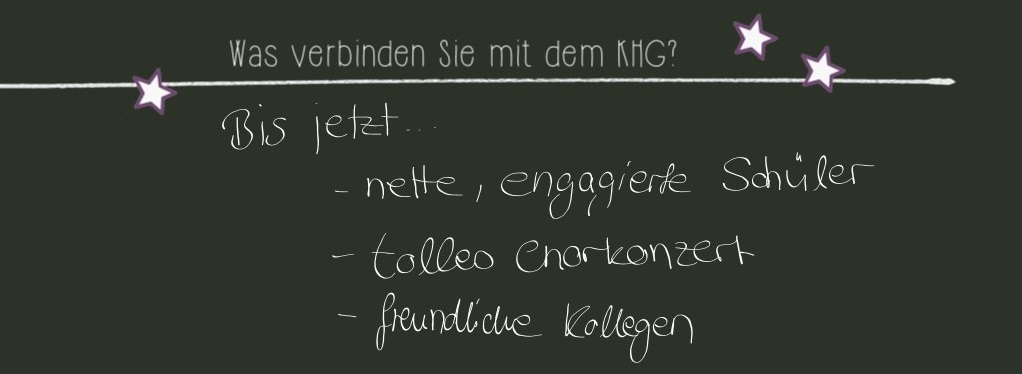 Was verbinden Sie mit dem KHG?
Bis jetzt...
- nette, engagierte Schüler
- tolles Chorkonzert
- freundliche Kollegen